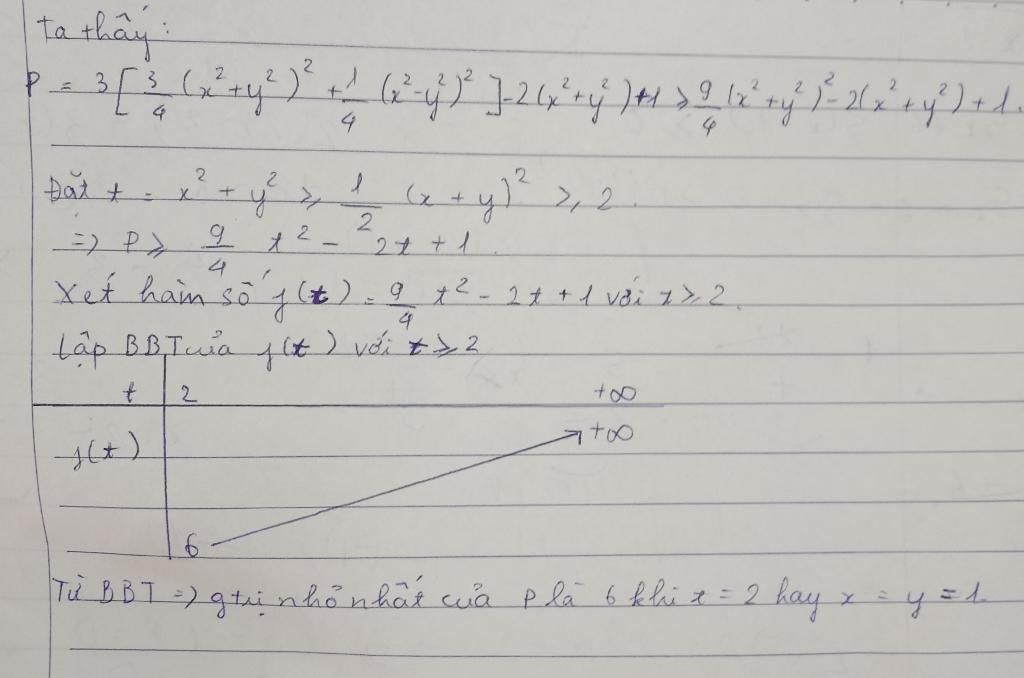 Ta thấy:
P = 3[3/4 (x²+y²)² + 1/4 (x²-y²)²] - 2(x²+y²)+1 ≥ 9/4 (x²+y²)² - 2(x²+y²)+1.
Đặt t = x² + y² ≥ 1/2 (x+y)² ≥ 2.
=> P ≥ 9/4 t² - 2t + 1.
Xét hàm số f(t) = 9/4 t² - 2t + 1 với t ≥ 2.
Lập BBT của f(t) với t ≥ 2
t 2 +∞
f(t) +∞
6
Từ BBT => gtrị nhỏ nhất của P là 6 khi t = 2 hay x = y = 1